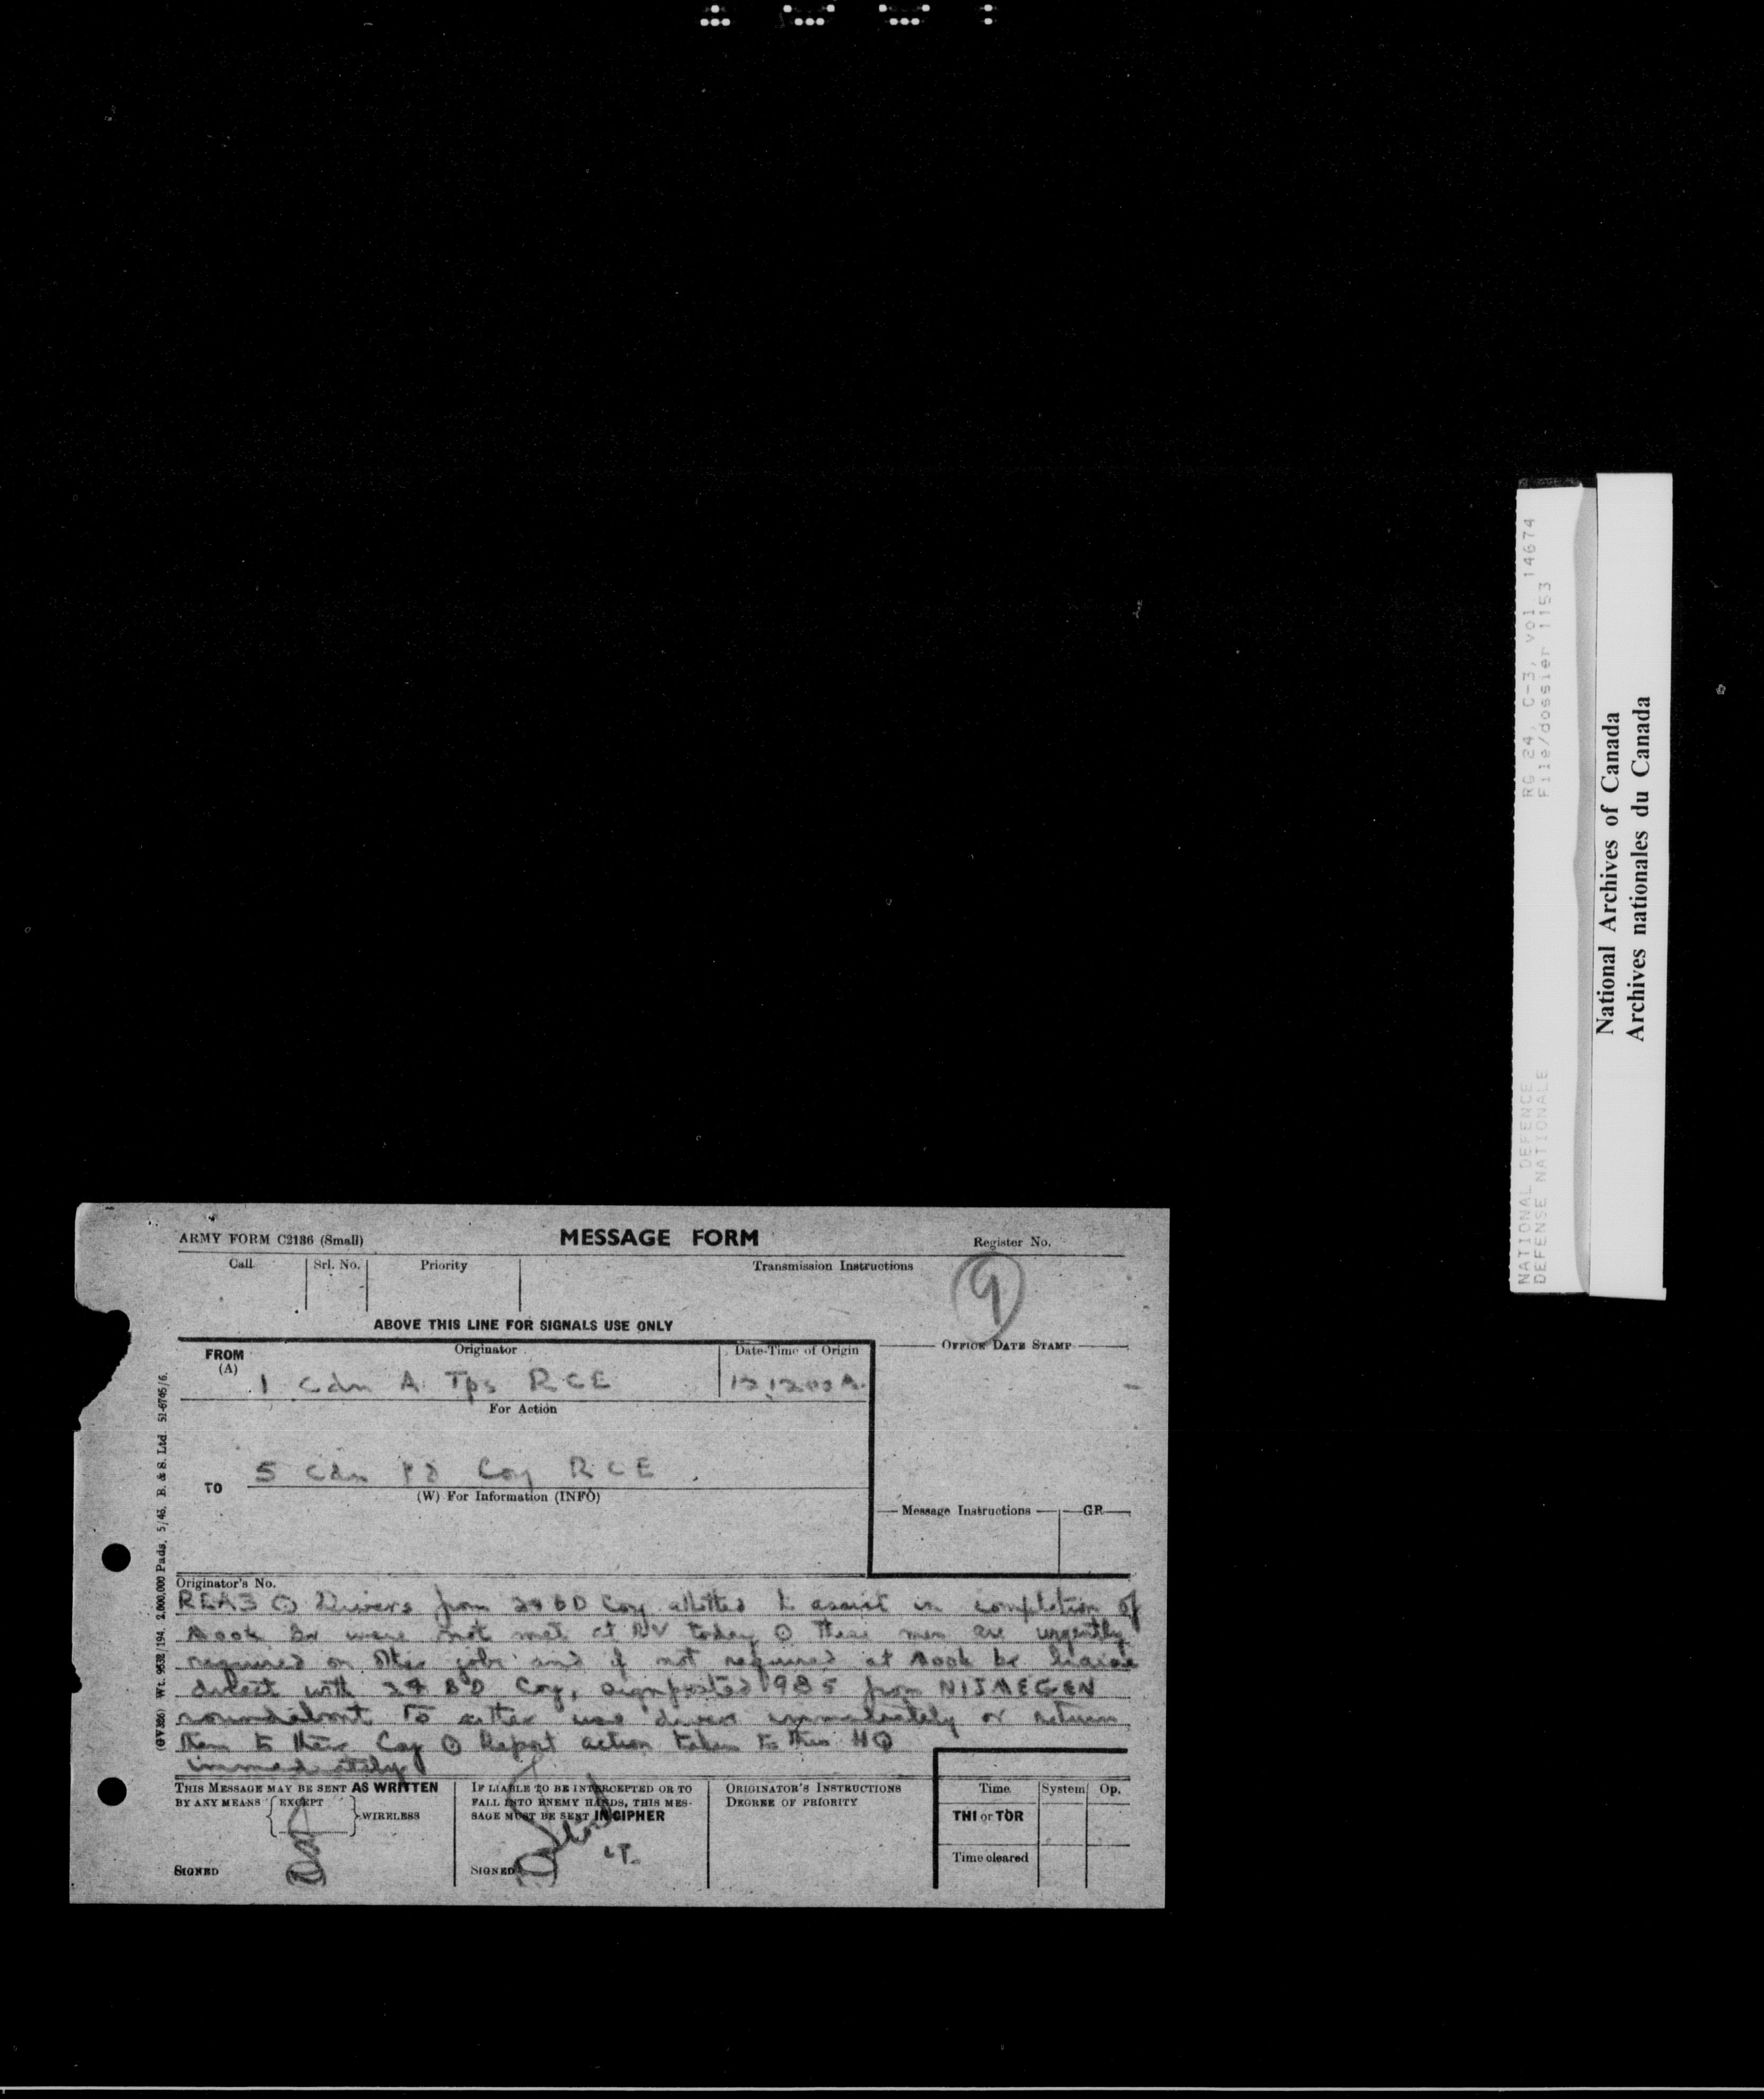 ARMY FORM C2136 (Small)
MESSAGE FORM
Register No.
Call
Srl. No.
Priority
Transmission Instructions
9
ABOVE THIS LINE FOR SIGNALS USE ONLY
FROM
(A)
Originator
Date-Time of Origin
OFFICE DATE STAMP
1 Cdn A Tps RCE
121200A.
For Action
TO
5 Cdn Fd Coy RCE
(W) For Information (INFO)
Message Instructions
GR
Originator's No.
Divers from 24 BD Coy allotted to assist in completion of
br were not met at RV today ⊙ these men are urgently
required on other jobs and if not required at br liaise
direct with 24 BD Coy, signposted 985 from NIJMEGEN
roundabout to either use divers immediately or return
them to their Coy ⊙ Report action taken to this HQ
immediately
THIS MESSAGE MAY BE SENT AS WRITTEN
BY ANY MEANS EXCEPT
WIRELESS
SIGNED
IF LIABLE TO BE INTERCEPTED OR TO
FALL INTO ENEMY HANDS, THIS MES-
SAGE MUST BE SENT IN CIPHER
LT.
SIGNED
ORIGINATOR'S INSTRUCTIONS
DEGREE OF PRIORITY
Time
System
Op.
THI or TOR
Time cleared
Wt. 9532/194. 2,000,000 Pads. 5/43. B. & S. Ltd. 51-6745/6.
NATIONAL DEFENCE
RG 24, C-3, vol. 14674
DEFENSE NATIONALE
File/dossier 1153
National Archives of Canada
Archives nationales du Canada